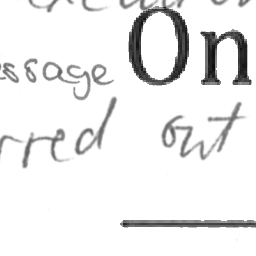 essage On
rred out